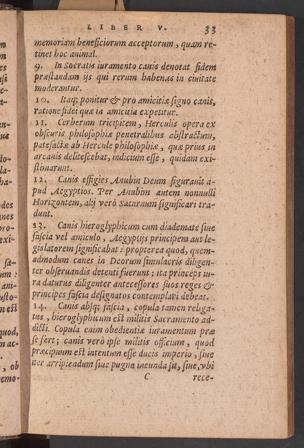 LIBER V. 33
memoriam beneficiorum acceptorum, quam re-
tinet hoc animal.
9. In Socratis iuramento canis denotat fidem
præstandam ijs qui rerum habenas in ciuitate
moderantur.
10. Itaq; ponitur & pro amicitiæ signo canis,
ratione fidei quæ in amicitia expetitur.
11. Cerberum tricipitem, Herculis opera ex
obscuris philosophiæ penetralibus abstractum,
patefactæ ab Hercule philosophiæ, quæ prius in
arcanis delitescebat, indicium esse, quidam exi-
stimarunt.
12. Canis effigies Anubin Deum figurauit a-
pud Ægyptios. Per Anubim autem nonnulli
Horizontem, alij verò Saturnum significari tra-
dunt.
13. Canis hieroglyphicum cum diademate siue
fascia vel amiculo, Ægyptijs principem aut le-
gislatorem significabat: propterea quod, quem-
admodum canes in Deorum simulacris diligen-
ter obseruandis detenti fuerunt: ita princeps iu-
ra daturus diligenter antecessores suos reges &
principes fascia designatos contemplari debeat.
14. Canis absq; fascia, copula tamen religa-
tus, hieroglyphicum est militis Sacramento ad-
dicti. Copula enim obedientiæ iuramentum præ
se fert; canis verò ipse militis officium, quod
præcipuum est intentum esse ducis imperio, siue
iter arripiendum siue pugna ineunda sit, siue, vbi
C rece-